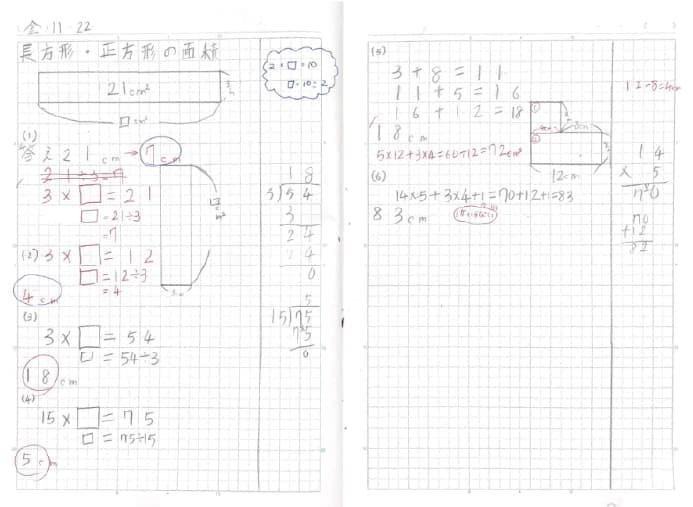 金 11 22
長方形・正方形の面積
2×□=10
□=10÷2
21cm²
□cm²
(1)
答え21cm→7cm
21÷3=7
3×□=21
□=21÷3
=7
(2) 3×□=12
□=12÷3
=4
4cm
(3)
3×□=54
□=54÷3
18cm
(4)
15×□=75
□=75÷15
5cm
18
3)54
3
24
24
0
5
15)75
75
0
(5)
3+8=11
11+5=16
16+12=18
18cm
5×12+3×4=60+12=72cm²
12-8=4cm
12cm
(6)
14×5+3×4+1=70+12+1=83
83cm
14
× 5
70
70
+12
82